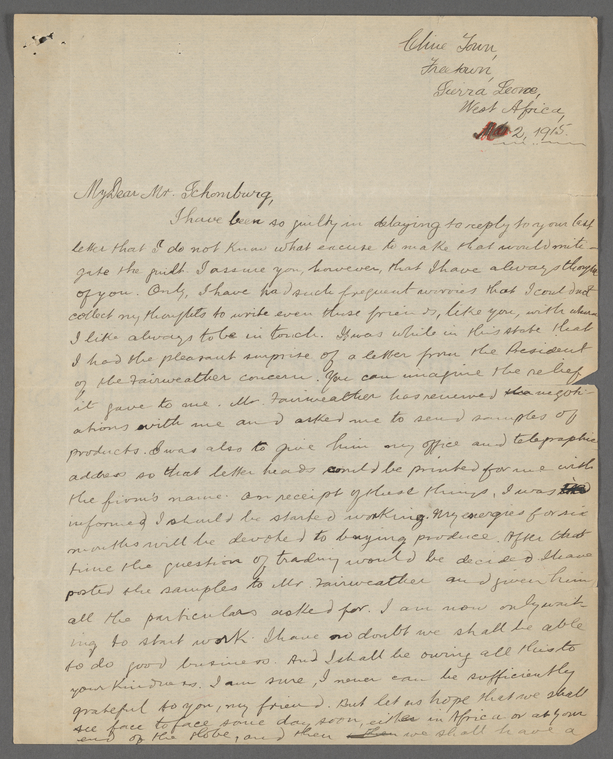 Cline Town,
Freetown,
Sierra Leone,
West Africa,
Mar 2, 1915.
My Dear Mr. Schomburg,
I have been so guilty in delaying to reply to your last
letter that I do not know what excuse to make that would miti-
gate the guilt. I assure you, however, that I have always thought
of you. Only, I have had such frequent worries that I could not
collect my thoughts to write even those friends, like you, with whom
I like always to be in touch. It was while in this state that
I had the pleasant surprise of a letter from the President
of the Fairweather concern. You can imagine the relief
it gave to me. Mr. Fairweather has renewed negoti-
ations with me and asked me to send samples of
products. I was also to give him my office and telegraphic
address so that letter heads could be printed for me with
the firm's name. On receipt of these things, I was
informed I should be started working. My energies for six
months will be devoted to buying produce. After that
time the question of trading would be decided. I have
posted the samples to Mr. Fairweather and given him
all the particulars asked for. I am now only wait-
ing to start work. I have no doubt we shall be able
to do good business. And I shall be owing all this to
your kindness. I am sure, I never can be sufficiently
grateful to you, my friend. But let us hope that we shall
see face to face some day soon, either in Africa or at your
end of the Globe, and then we shall have a